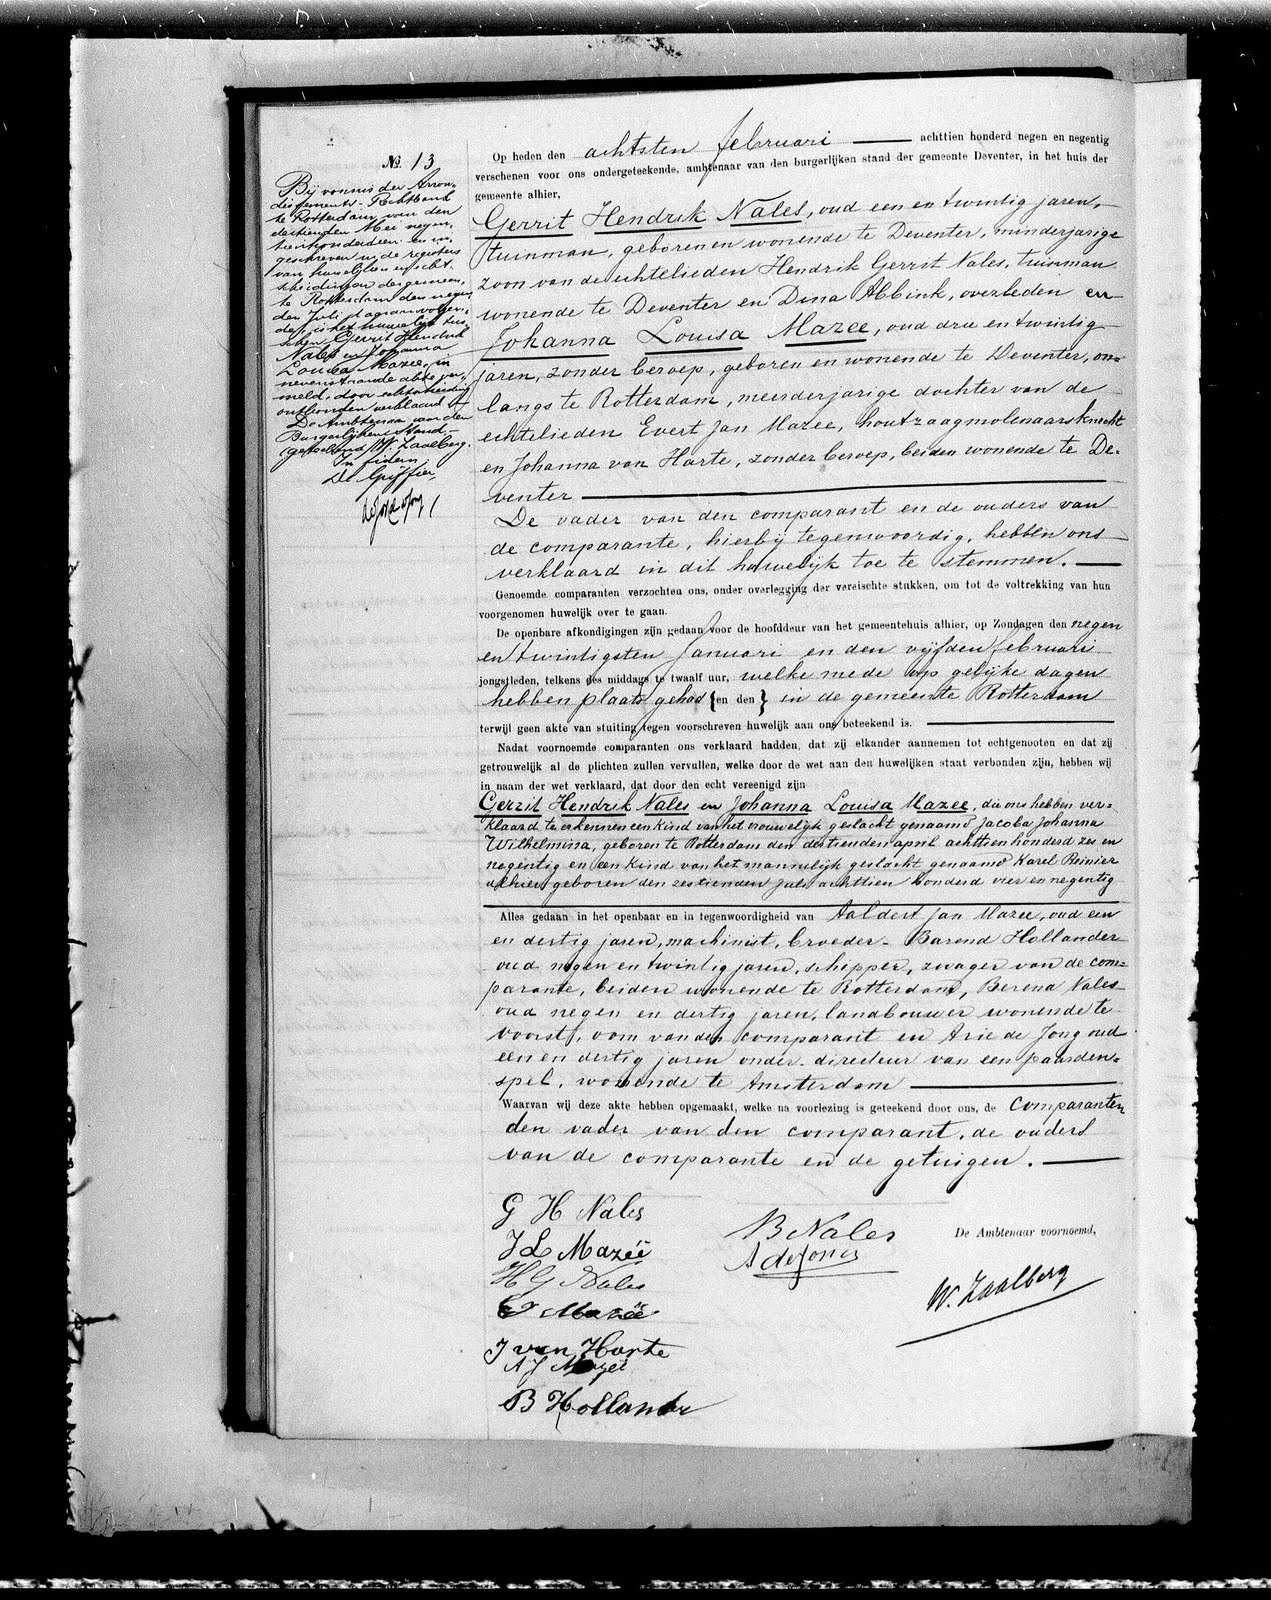 № 13
Bij vonnis der Arron-
dissements-Rechtbank
te Rotterdam van den
dertienden Mei negen-
tienhonderdeen en in-
geschreven in de registers
van huwelijken en echt-
scheidingen der gemeen-
te Rotterdam den negen
den Juli d.a.aanvolgen-
de, is het huwelijk tus-
schen Gerrit Hendrik
Nales en Johanna
Louisa Mazee, in
nevenstaande akte ver-
meld, door echtscheiding
ontbonden verklaard
De Ambtenaar van den
Burgerlijken Stand,
geteekend W. Zaalberg.
In fidem
De Griffier,
Op heden den achtsten februari — achttien honderd negen en negentig
verschenen voor ons ondergeteekende, ambtenaar van den burgerlijken stand der gemeente Deventer, in het huis der
gemeente alhier,
Gerrit Hendrik Nales, oud een en twintig jaren,
tuinman, geboren en wonende te Deventer, minderjarige
zoon van de echtelieden Hendrik Gerrit Nales, tuinman
wonende te Deventer en Dina Abbink, overleden en
Johanna Louisa Mazee, oud drie en twintig
jaren, zonder beroep, geboren en wonende te Deventer, on=
langs te Rotterdam, meerderjarige dochter van de
echtelieden Evert Jan Mazee, houtzaagmolenaarsknecht
en Johanna van Harte, zonder beroep, beiden wonende te De-
venter —
De vader van den comparant en de ouders van
de comparante, hierbij tegenwoordig, hebben ons
verklaard in dit huwelijk toe te stemmen. —
Genoemde comparanten verzochten ons, onder overlegging der vereischte stukken, om tot de voltrekking van hun
voorgenomen huwelijk over te gaan.
De openbare afkondigingen zijn gedaan voor de hoofddeur van het gemeentehuis alhier, op Zondagen den negen
en twintigsten Januari en den vijfden februari
jongstleden, telkens des middags te twaalf uur, welke mede op gelijke dagen
hebben plaats gehad {en den} in de gemeente Rotterdam
terwijl geen akte van stuiting tegen voorschreven huwelijk aan ons beteekend is. —
Nadat voornoemde comparanten ons verklaard hadden, dat zij elkander aannemen tot echtgenooten en dat zij
getrouwelijk al de plichten zullen vervullen, welke door de wet aan den huwelijken staat verbonden zijn, hebben wij
in naam der wet verklaard, dat door den echt vereenigd zijn
Gerrit Hendrik Nales en Johanna Louisa Mazee, die ons hebben ver=
klaard te erkennen een kind van het vrouwelijk geslacht genaamd Jacoba Johanna
Wilhelmina, geboren te Rotterdam den dertienden april achttien honderd zes en
negentig en een kind van het mannelijk geslacht genaamd Karel Reinier
alhier geboren den zestienden juli achttien honderd vier en negentig
Alles gedaan in het openbaar en in tegenwoordigheid van Aaldert Jan Mazee, oud een
en dertig jaren, machinist, broeder - Barend Hollander
oud negen en twintig jaren, schipper, zwager van de com=
parante, beiden wonende te Rotterdam, Berend Nales
oud negen en dertig jaren, landbouwer wonende te
Voorst, oom van den comparant en Arie de Jong oud
een en dertig jaren onder-directeur van een paarden=
spel, wonende te Amsterdam —
Waarvan wij deze akte hebben opgemaakt, welke na voorlezing is geteekend door ons, de comparanten
den vader van den comparant, de ouders
van de comparante en de getuigen. —
G H Nales
J L Mazéé
H G Nales
E J Mazéé
J van Harte
A J Mazee
B Hollander
B Nales
A de Jong
De Ambtenaar voornoemd,
W. Zaalberg